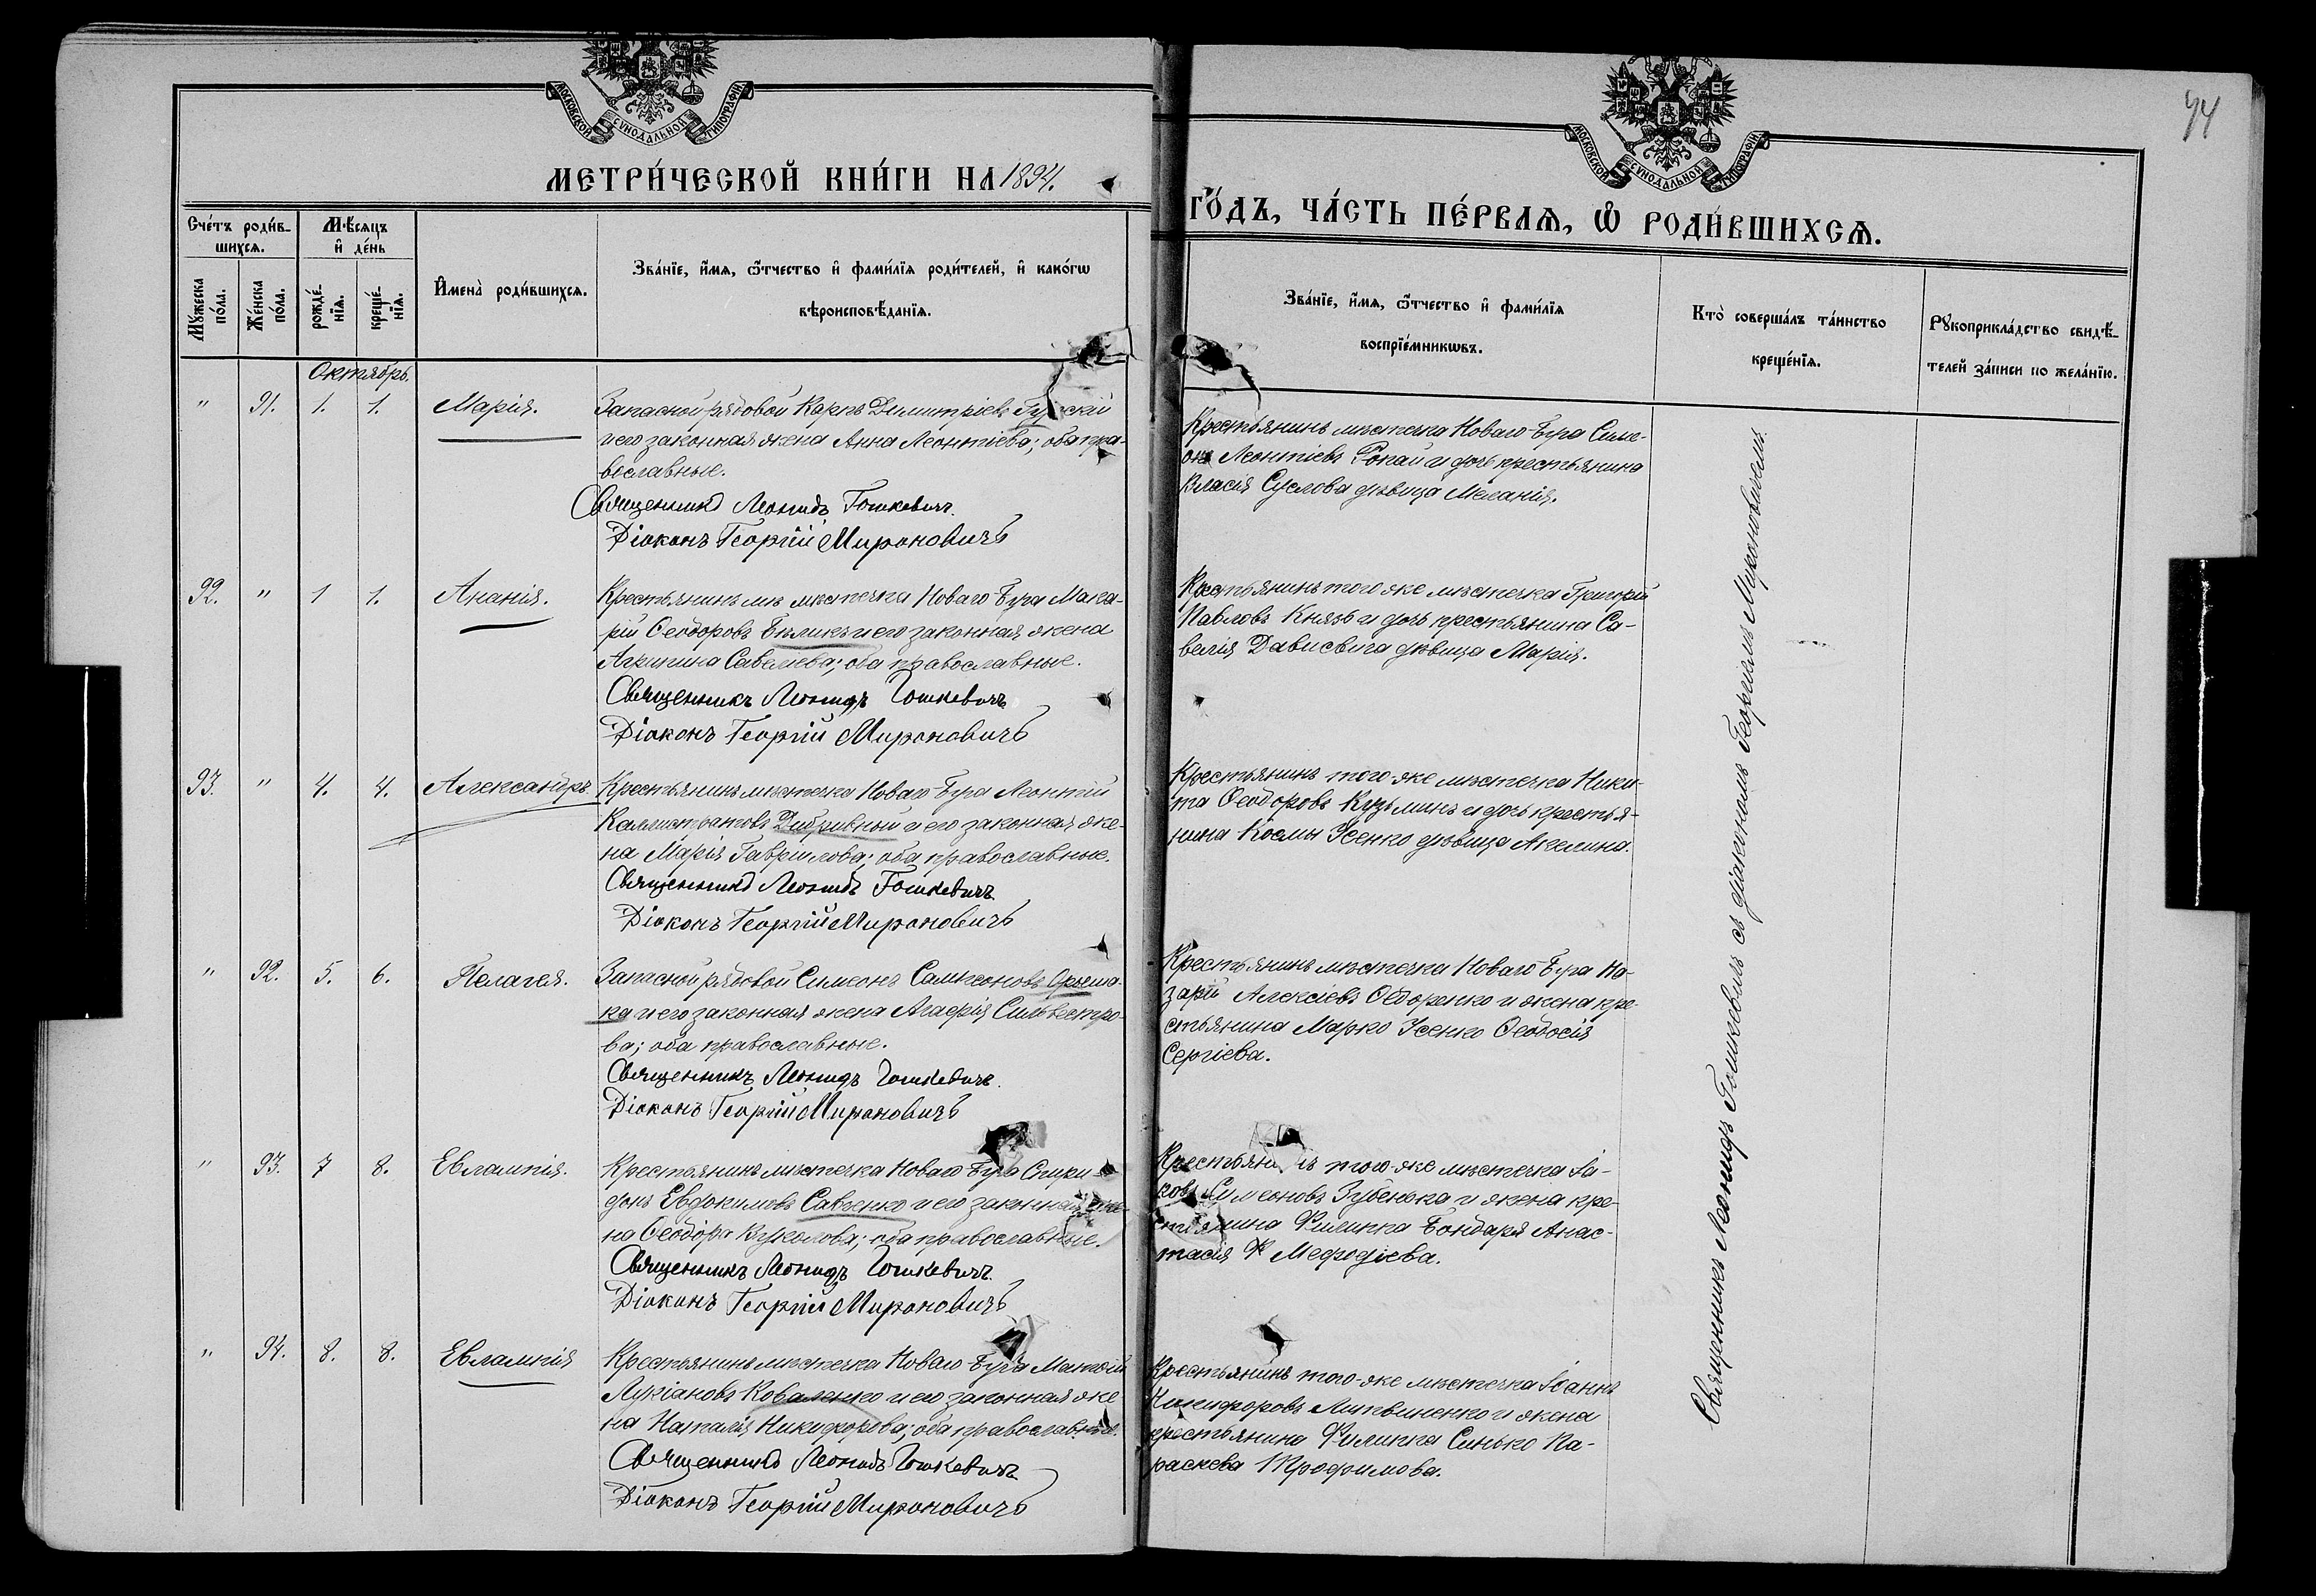 94
МОСКОВСКОЙ СУНОДАЛЬНОЙ ТИПОГРАФІИ
МОСКОВСКОЙ СУНОДАЛЬНОЙ ТИПОГРАФІИ
МЕТРИ́ЧЕСКОЙ КНИ́ГИ НА 1894.
ГО́ДЪ, ЧА́СТЬ ПЕ́РВАѦ, Ѡ҆ РОДИ́ВШИХСѦ.
Сче́тъ роди́в-
шихсѧ.
Мѣ́сяцъ
и҆ де́нь
Мꙋ́жеска
по́ла.
Же́нска
по́ла.
рожде́-
нїѧ.
креще́-
нїѧ.
И҆мена̀ роди́вшихсѧ.
Зва́нїе, и҆́мѧ, ѻ҆́тчество и҆ фами́лїѧ роди́телей, и҆ како́гѡ
вѣроисповѣ́данїѧ.
Зва́нїе, и҆́мѧ, ѻ҆́тчество и҆ фами́лїѧ
воспрїе́мникѡвъ.
Кто̀ соверша́лъ та́инство
креще́нїѧ.
Рꙋкоприкла́дство свидѣ́-
телей за́писи по жела́нїю.
Октябрь.
" 91. 1. 1. Марія.
Запасной рядовой Карпъ Димитріевъ
и его законная жена Анна Леонтіева; оба пра-
вославные.
Священникъ Леонидъ Гошкевичъ.
Діаконъ Георгій Мироновичъ
Крестьянинъ мѣстечка Новаго-Буга Симе-
онъ Леонтіевъ Рокай и дочь крестьянина
Власія Суслова дѣвица Меланія.
92. " 1 1. Ананія.
Крестьянинъ мѣстечка Новаго Буга Мака-
рій Ѳеодоровъ Бѣликъ и его законная жена
Агрипина Савеліева; оба православные.
Священникъ Леонидъ Гошкевичъ
Діаконъ Георгій Мироновичъ
Крестьянинъ того же мѣстечка Григорій
Павловъ Князь и дочь крестьянина Са-
велія дѣвица Марія.
93. " 4. 4. Александръ
Крестьянинъ мѣстечка Новаго Буга Леонтій
Каллистратовъ Дибривный и его законная же-
на Марія Гавріилова; оба православные.
Священникъ Леонидъ Гошкевичъ
Діаконъ Георгій Мироновичъ
Крестьянинъ того-же мѣстечка Ники-
та Ѳеодоровъ Кузьминъ и дочь крестья-
нина Космы Усенко дѣвица Акелина.
" 92. 5. 6. Пелагея.
Запасной рядовой Симеонъ Сампсоновъ
и его законная жена Агафія Сильвестро-
ва; оба православные.
Священникъ Леонидъ Гошкевичъ.
Діаконъ Георгій Мироновичъ
Крестьянинъ мѣстечка Новаго Буга На-
зарій Алексіевъ Ѳедоренко и жена кре-
стьянина Марко Усенко Ѳеодосія
Сергіева.
" 93. 7 8. Евлампія.
Крестьянинъ мѣстечка Новаго Буга Спири-
донъ Евдокимовъ Савченко и его законная же-
на Ѳеодора Вуколова; оба православные.
Священникъ Леонидъ Гошкевичъ.
Діаконъ Георгій Мироновичъ
Крестьянинъ того-же мѣстечка Іа-
ковъ Симеоновъ Зубенька и жена кре-
стьянина Филиппа Бондаря Анас-
тасія Меѳодіева.
" 94. 8. 8. Евлампія
Крестьянинъ мѣстечка Новаго Буга
Лукіановъ Коваленко и его законная же-
на Наталія Никифорова; оба православные.
Священникъ Леонидъ Гошкевичъ
Діаконъ Георгій Мироновичъ
Крестьянинъ того-же мѣстечка Іоаннъ
Никифоровъ Литвиненко и жена
крестьянина Филиппа Синько Па-
раскева Трофимова.
Священникъ Леонидъ Гошкевичъ съ діакономъ Георгіемъ Мироновичемъ.